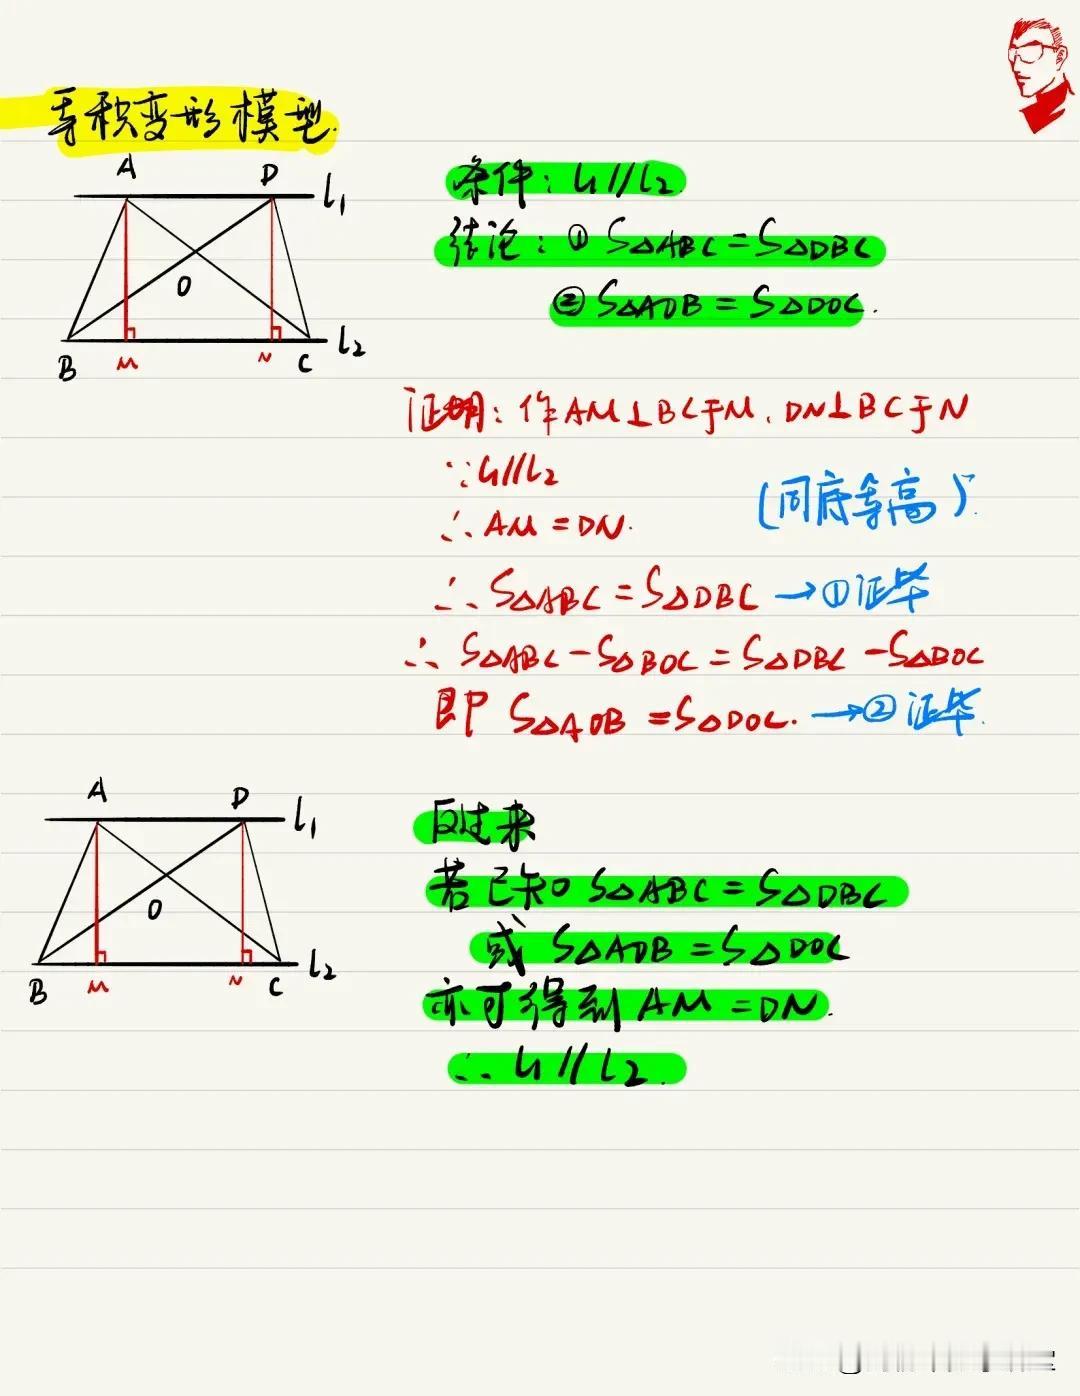 等积变形模型.
A D l₁
O
B M N C l₂
条件: l₁∥l₂
结论: ① S△ABC=S△DBC
② S△AOB=S△DOC.
证明: 作AM⊥BC于M, DN⊥BC于N
∵l₁∥l₂
(同底等高)
∴AM=DN.
∴S△ABC=S△DBC →①证毕
∴S△ABC-S△BOC=S△DBC-S△BOC
即 S△AOB=S△DOC. →②证毕.
A D l₁
O
B M N C l₂
反过来
若已知 S△ABC=S△DBC
或 S△AOB=S△DOC
亦可得到 AM=DN.
∴l₁∥l₂.